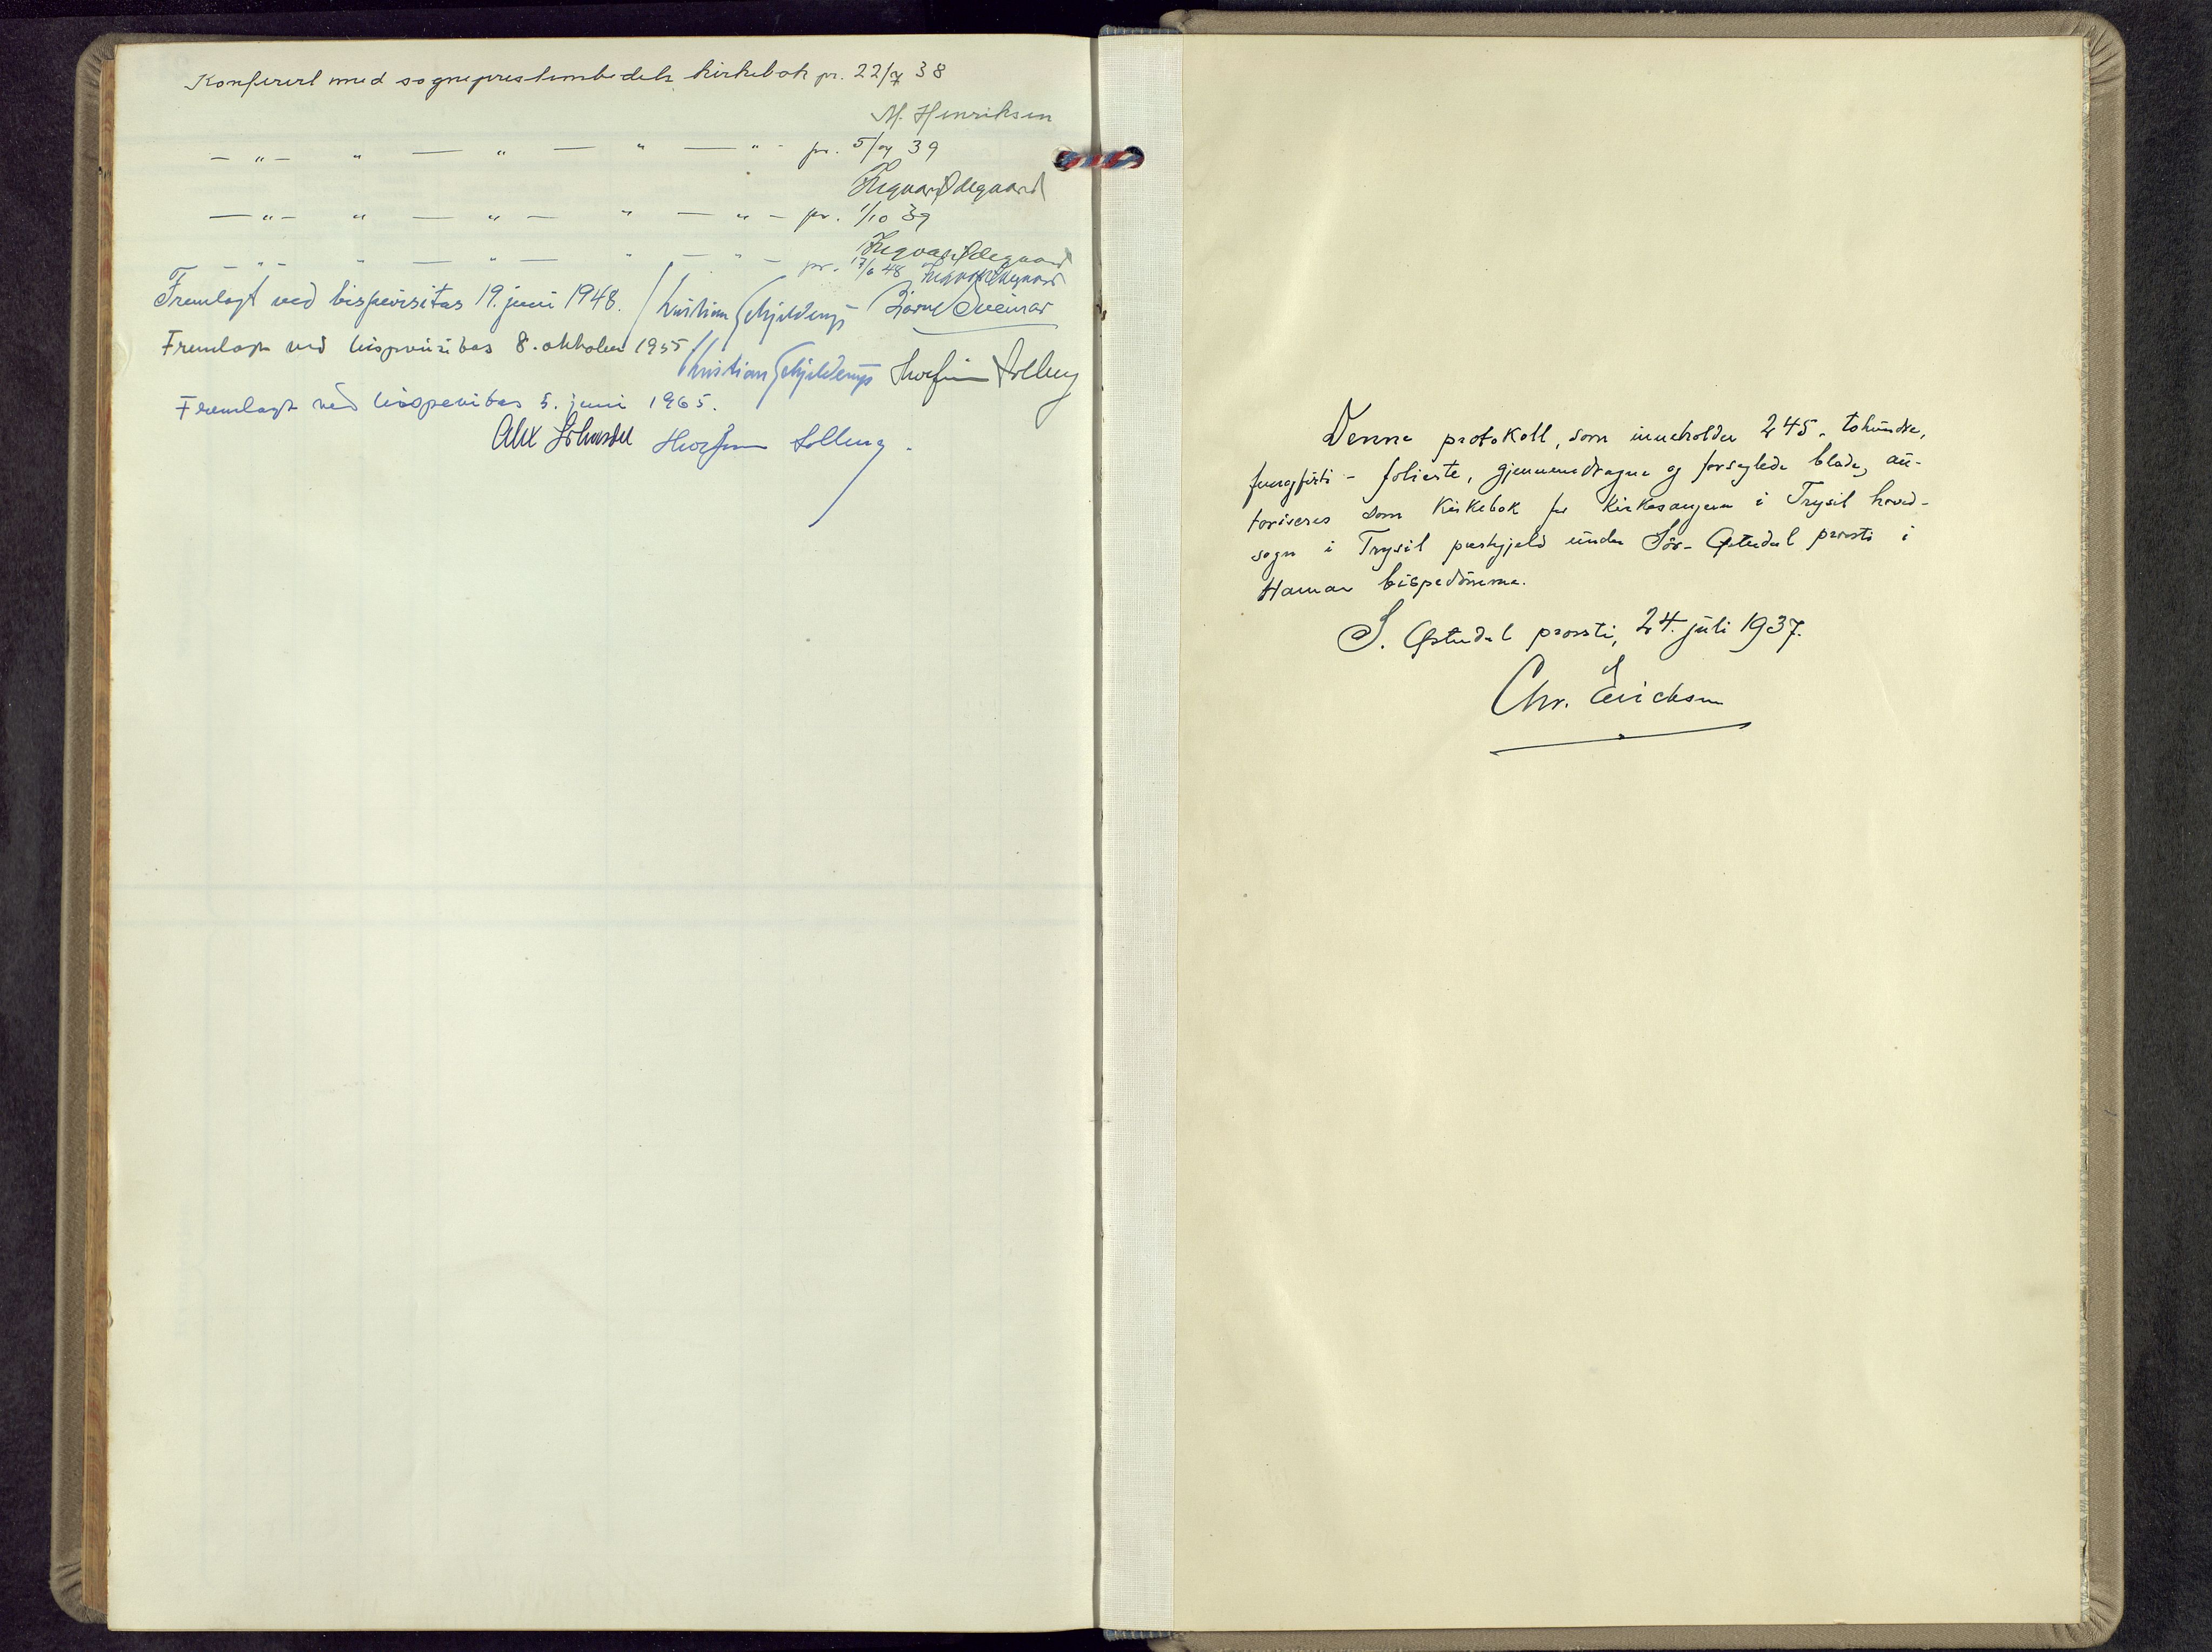 Konferert med sogneprestembedets kirkebok pr. 22/7 38
M. Henriksen
— " — " — " — " — " - pr. 5/7 39
Ingvar Ødegaard
— " — " — " — " — " — pr. 1/10 39
Ingvar Ødegaard
— " — " — " — " — " — pr. 17/6 48 Ingvar Ødegaard
Fremlagt ved bispevisitas 19. juni 1948. Kristian Schjelderup Bjarne Sveinar
Fremlagt ved bispevisitas 8. oktober 1955
Kristian Schjelderup Thorfinn Solberg
Fremlagt ved bispevisitas 5. juni 1965.
Alex Johnson Thorfinn Solberg.
Denne protokoll, som inneholder 245 - tohundre,
femogførti - folierte, gjennemdragne og forseglede blade, au-
toriseres som kirkebok for kirkesangeren i Trysil hoved-
sogn i Trysil prestgjeld under Sør-Østerdal prosti i
Hamar bispedømme.
S. Østerdal prosti, 24. juli 1937.
Chr. Erichsen